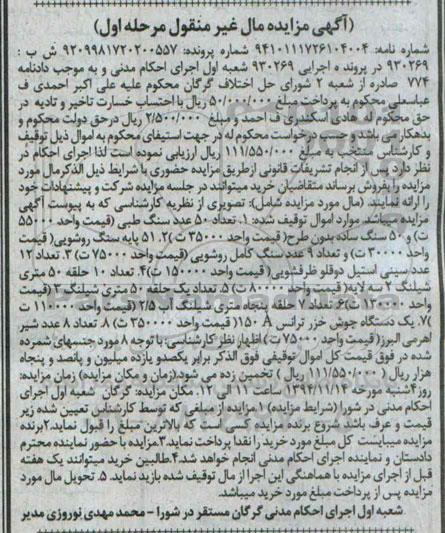 (آگهی مزایده مال غیر منقول مرحله اول)
شماره نامه: 9410111726104004 شماره پرونده: 9209981720200557 ش ب :
930269 در پرونده اجرایی 930269 شعبه اول اجرای احکام مدنی و به موجب دادنامه
774 صادره از شعبه 2 شورای حل اختلاف گرگان محکوم علیه علی اکبر احمدی ف
عباسعلی محکوم به پرداخت مبلغ 50/000/000 ریال با احتساب خسارت تاخیر و تادیه در
حق محکوم له هادی اسکندری ف احمد و مبلغ 2/500/000 ریال درحق دولت محکوم و
بدهکار می باشد و حسب درخواست محکوم له در جهت استیفای محکوم به اموال ذیل توقیف
و کارشناس منتخب به مبلغ 111/550/000 ریال ارزیابی نموده است لذا اجرای احکام در
نظر دارد پس از انجام تشریفات قانونی ازطریق مزایده حضوری با شرایط ذیل الذکرمال مورد
مزایده را بفروش برساند متقاضیان خرید میتوانند در جلسه مزایده شرکت و پیشنهادات خود
را ارائه نمایند. (مال مورد مزایده شامل): تصویری از نظریه کارشناسی که به پیوست آگهی
مزایده میباشد. موارد اموال توقیف شده: 1. تعداد 50 عدد سنگ طبی (قیمت واحد 55000
ت) و 50 سنگ ساده بدون طرح( قیمت واحد 35000 ت) 2. 51 پایه سنگ روشویی( قیمت
واحد 30000 ت) و تعداد 9 عدد سنگ کامل روشویی (قیمت واحد 75000 ت) 3. تعداد 12
عدد سینی استیل دوقلو ظرفشویی( قیمت واحد 150000 ت) 4. تعداد 10 حلقه 50 متری
شیلنگ 2 سه لایه( قیمت واحد 8000 ت) 5. تعداد یک حلقه 50 متری شیلنگ 2( قیمت
واحد 13000 ت) 6. تعداد 7 حلقه پنجاه متری شیلنگ آب 2/5 (قیمت واحد 11000 ت
)7. یک دستگاه جوش خزر ترانس 150 A( قیمت واحد 35000 ت) 8. تعداد 8 عدد شیر
اهرمی البرز( قیمت واحد 75000 ت) اظهار نظر کارشناسی: با توجه 8 مورد جنسهای شمرده
شده در فوق قیمت کل اموال توقیفی فوق الذکر برابر یکصدو یازده میلیون و پانصد و پنجاه
هزار ریال ( 111/550/000 ریال ) تخمین زده می شود.(زمان و مکان مزایده) زمان مزایده
روز 4شنبه مورخه 1394/11/14 ساعت 11 الی 12. مکان مزایده: گرگان شعبه اول اجرای
احکام مدنی در شورا (شرایط مزایده) 1. مزایده از مبلغی که توسط کارشناس تعیین شده زیر
قیمت و عرف باشد شروع برنده مزایده کسی است که بالاترین مبلغ را قبول نماید.2برنده
مزایده میبایست کل مبلغ مورد خرید را نقدا پرداخت نماید.3مزایده با حضور نماینده محترم
دادستان و نماینده اجرای احکام مدنی انجام خواهد شد.4طالبین خرید میتوانند یک هفته
قبل از اجرای مزایده با هماهنگی این اجرا از مال توقیف شده بازید نماید. 5. تحویل مال مورد
مزایده پس از پرداخت مبلغ مورد خرید میباشد.
شعبه اول اجرای احکام مدنی گرگان مستقر در شورا - محمد مهدی نوروزی مدیر